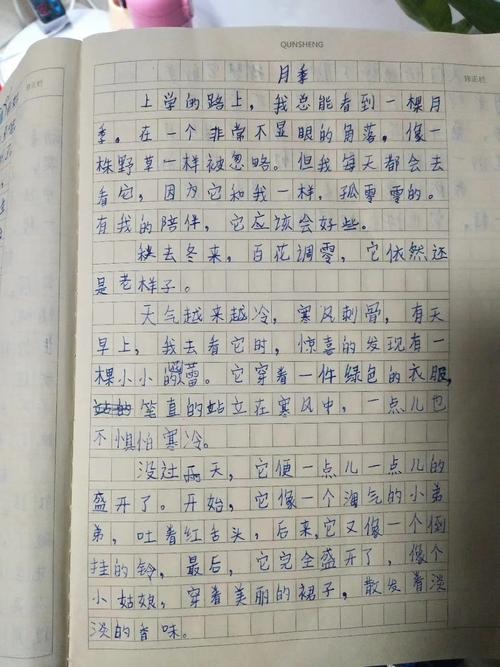 QUNSHENG
月季
上学的路上，我总能看到一棵月
季。在一个非常不显眼的角落。像一
株野草一样被忽略。但我每天都会去
看它，因为它和我一样，孤零零的。
有我的陪伴，它应该会好些。
秋去冬来，百花凋零，它依然还
是老样子。
天气越来越冷，寒风刺骨，有天
早上，我去看它时，惊喜的发现有一
棵小小蕾。它穿着一件绿包的衣服，
笔直的站立在寒风中，一点儿也
不惧怕寒冷。
没过两天，它便一点儿一点儿的
盛开了。开始，它像一个淘气的小弟
弟，吐着红舌头，后来，它又像一个倒
挂的铃，最后，它完全盛开了，像个
小姑娘，穿着美丽的裙子，散发着淡
淡的香味。